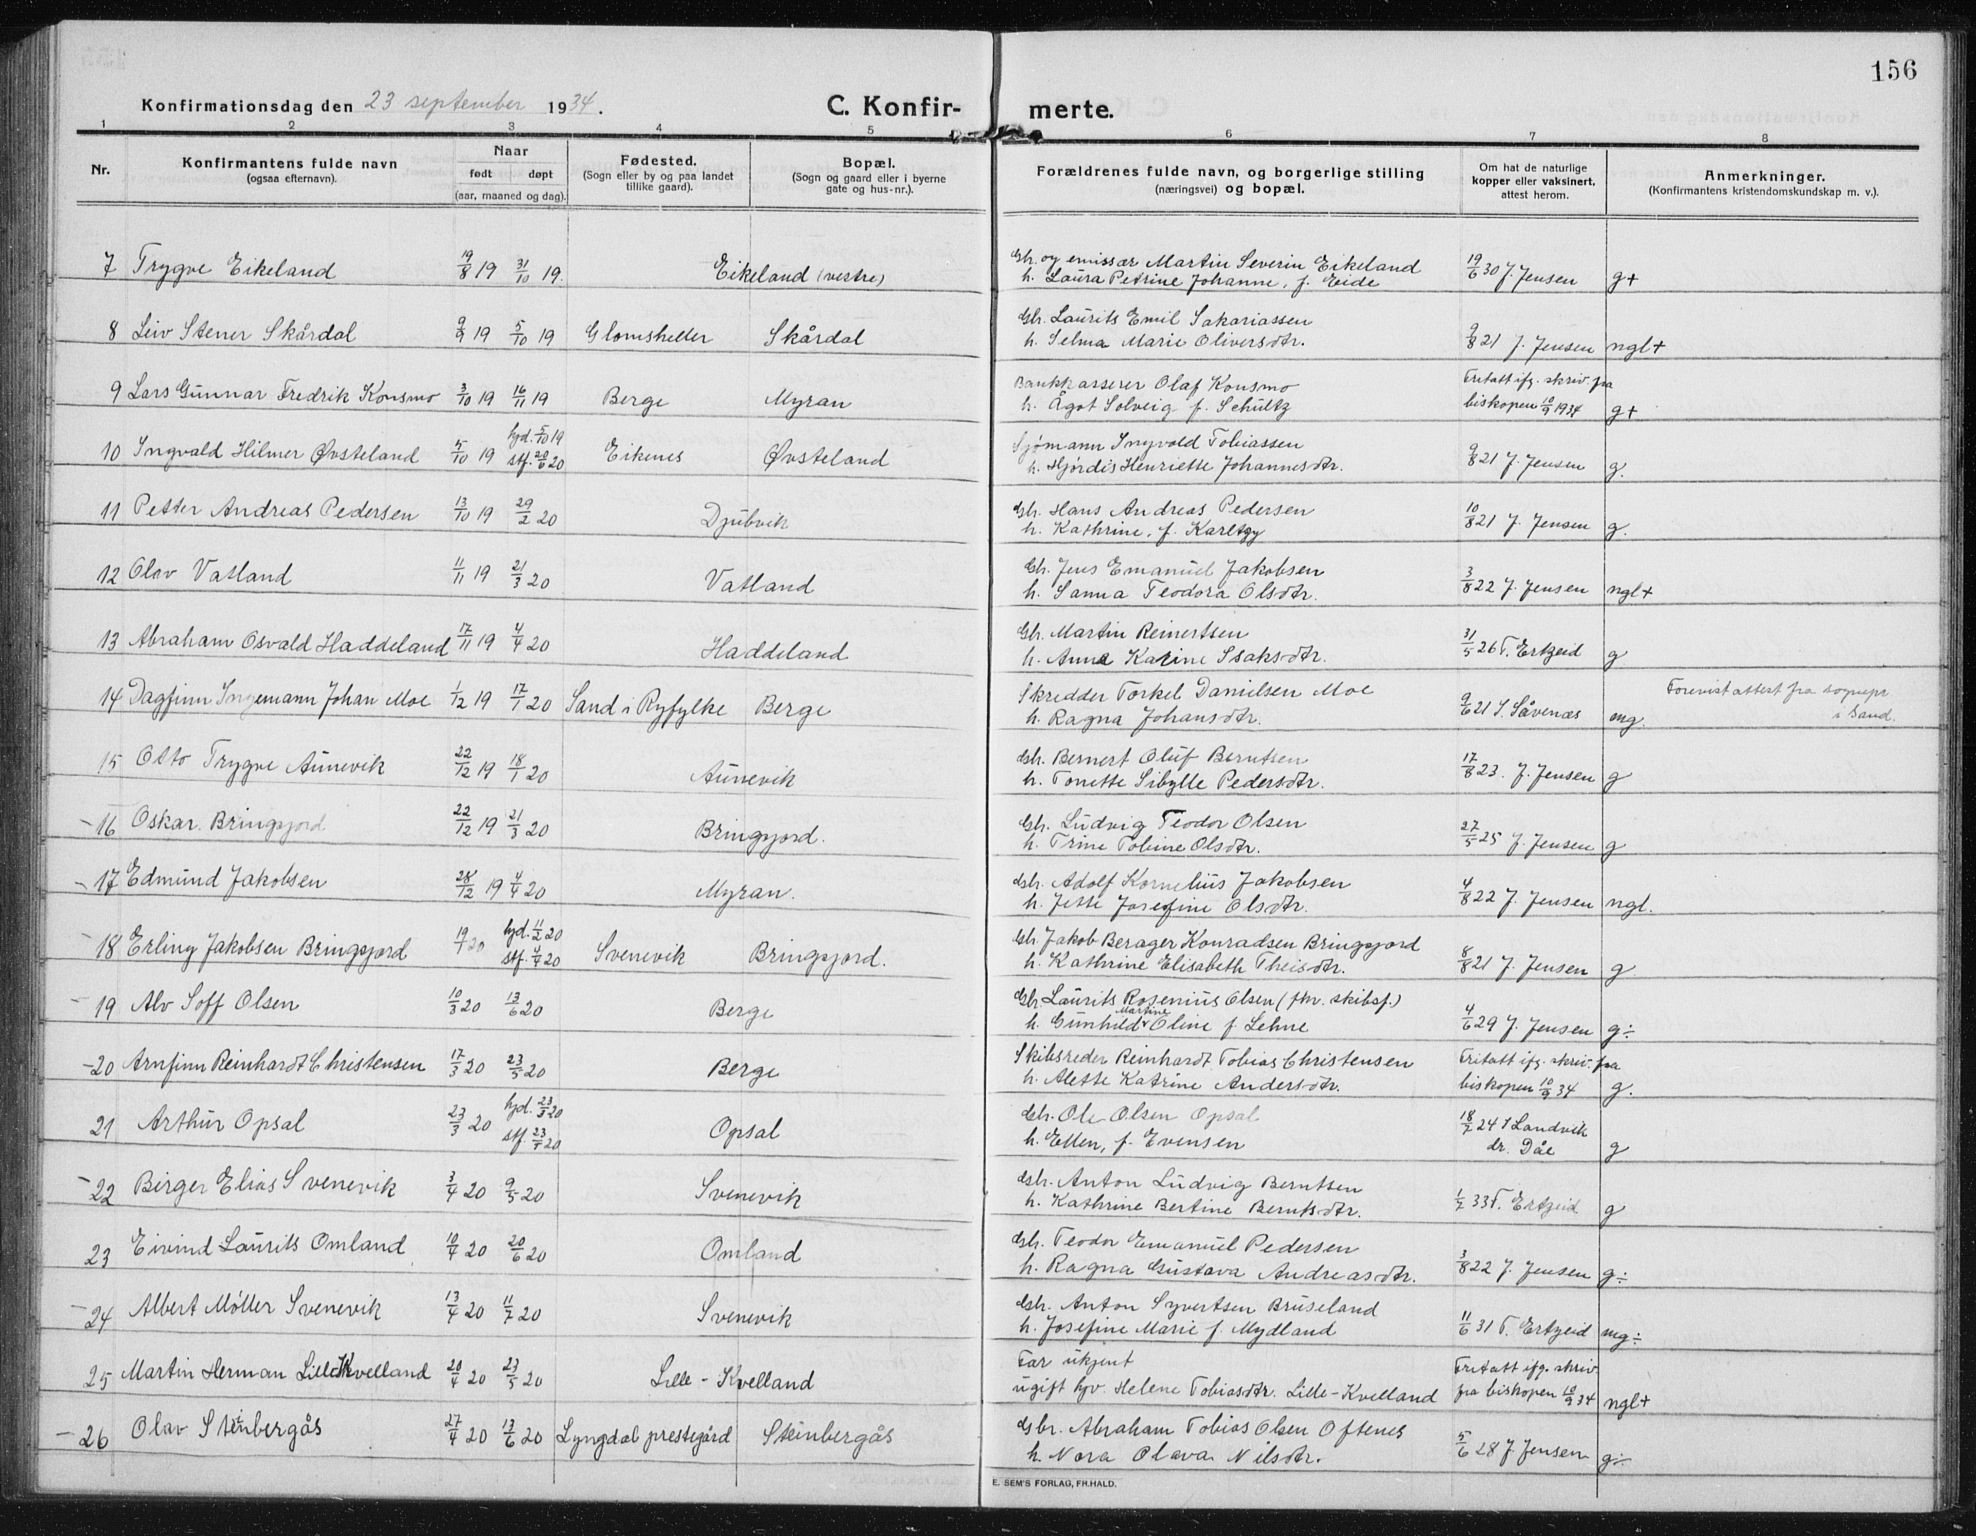 156
Konfirmationsdag den 23 september 1934.
C. Konfir- merte.
1 2 3 4 5 6 7 8
Nr. Konfirmantens fulde navn (ogsaa efternavn). Naar født døpt (aar, maaned og dag). Fødested. (Sogn eller by og paa landet tillike gaard). Bopæl. (Sogn og gaard eller i byerne gate og hus-nr.). Forældrenes fulde navn, og borgerlige stilling (næringsvei) og bopæl. Om hat de naturlige kopper eller vaksinert, attest herom. Anmerkninger. (Konfirmantens kristendomskundskap m. v.).
7 Trygve Eikeland 19/8 19 31/10 19. Eikeland (vestre) Gbr. og emissær Martin Severin Eikeland 19/6 30 J. Jensen g+
h. Laura Petrine Johanne, f. Eide
8 Leiv Stener Skårdal 9/9 19 5/10 19 Glomsheller Skårdal Gbr. Laurits Emil Sakariassen 9/8 21 J. Jensen ngl+
h. Selma Marie Oliversdtr.
9 Lars Gunnar Fredrik Konsmo 3/10 19 16/11 19 Berge Myran Bankkasserer Olaf Konsmo Fritatt ifg. skriv. fra
h. Ågot Solveig f. Schultz biskopen 10/9 1934 g+
10 Ingvald Hilmer Øvsteland 5/10 19 hjd. 5/10 19 stf. 20/6 20 Eikenes Øvsteland Sjømann Ingvald Tobiassen 9/8 21 J. Jensen g.
h. Hjørdis Henriette Johannesdtr.
11 Petter Andreas Pedersen 13/10 19 29/2 20 Djubvik Gbr. Hans Andreas Pedersen 10/8 21 J. Jensen g.
h. Kathrine, f.
12 Olav Vatland 11/11 19 21/3 20 Vatland Gbr. Jens Emanuel Jakobsen 3/8 22 J. Jensen ngl+
h. Sanna Teodora Olsdtr.
13 Abraham Osvald Haddeland 17/11 19 4/4 20 Haddeland Gbr. Martin Reinertsen 31/5 26 T. Ertzeid g
h. Anna Karine Isaksdtr.
14 Dagfinn Ingemann Johan Moe 1/12 19 17/1 20 Sand i Ryfylke Berge Skredder Torkel Danielsen Moe 9/6 21 S. Såvenæs mg. Forevist attest fra sognepr
h. Ragna Johansdtr. i Sand.
15 Otto Trygve Aunevik 22/12 19 18/1 20 Aunevik Gbr. Bernert Oluf Berntsen 17/8 23. J. Jensen g
h. Tonette Sibylle Pedersdtr.
16 Oskar Bringsjord 22/12 19 21/3 20 Bringsjord. Gbr. Ludvig Teodor Olsen 27/5 25 J. Jensen g
h. Trine Tobine Olsdtr.
17 Edmund Jakobsen 28/12 19 4/4 20 Myran. Gbr. Adolf Kornelius Jakobsen 4/8 22 J. Jensen ngl.
h. Jette Josefine Olsdtr.
18 Erling Jakobsen Bringsjord 19/1 20 hjd. 11/2 20 stf. 4/4 20 Svenevik Bringsjord. Gbr. Jakob Berager Konradsen Bringsjord 8/8 21 J. Jensen g
h. Kathrine Elisabeth Theisdtr.
19 Alv Soff Olsen 10/3 20 13/6 20 Berge Gbr. Laurits Rosenius Olsen (fhv. skibsf.) 4/6 29 J. Jensen g÷
h. Gunhild Martine Oline f. Lehne
20 Arnfinn Reinhardt Christensen 17/3 20 23/5 20 Berge Skibsreder Reinhardt Tobias Christensen Fritatt ifg. skriv. fra
h. Alette Katrine Andersdtr. biskopen 10/9 34 g.
21 Arthur Opsal 23/3 20 hjd. 23/3 20 stf. 23/7 20 Opsal Gbr. Ole Olsen Opsal 18/7 24 S Landvik
h. Ellen, f. Evensen dr. Dåe g
22 Birger Elias Svenevik 3/4 20 9/5 20 Svenevik Gbr. Anton Ludvig Berntsen 1/7 33 T. Ertzeid g
h. Kathrine Bertine Berntsdtr.
23 Eivind Laurits Omland 10/4 20 20/6 20 Omland Gbr. Teodor Emanuel Pedersen 3/8 22 J. Jensen g÷
h. Ragna Gustava Andreasdtr.
24 Albert Møller Svenevik 13/4 20 11/7 20 Svenevik Gbr. Anton Syvertsen Bruseland 11/6 31 T. Ertzeid mg÷
h. Josefine Marie f. Mydland
25 Martin Herman Lille Kvelland 20/4 20 23/5 20 Lille-Kvelland Far ukjent Fritatt ifg. skriv
ugift hjv. Helene Tobiasdtr. Lille-Kvelland fra biskopen 10/9 34 ngl+
26 Olav Steinbergås 27/4 20 13/6 20 Lyngdal prestegård Steinbergås Gbr. Abraham Tobias Olsen Oftenes 5/6 28 J. Jensen g÷
h. Nora Olava Nilsdtr.
E. SEM'S FORLAG, FR.HALD.